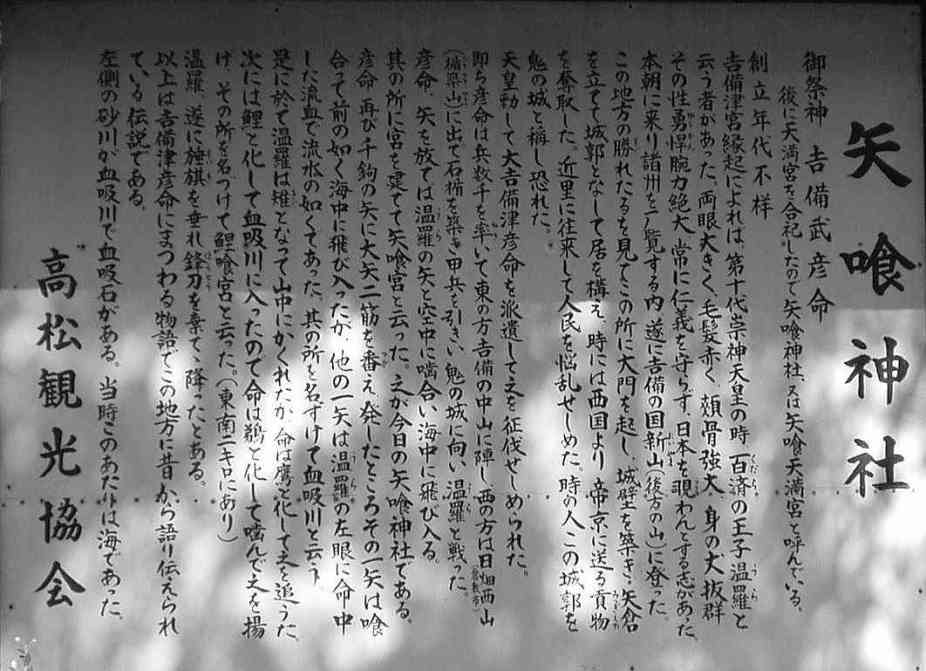 矢喰神社
御祭神 吉備武彦命
後に天満宮を合祀したので矢喰神社、又は矢喰天満宮と呼んでいる。
創立年代不様
吉備津宮縁起によれば、第十代崇神天皇の時 百済の王子温羅と
云う者があった。両眼大きく、毛髪赤く、頬骨強大、身の丈抜群
その性勇悍腕力絶大、常に仁義を守らず、日本を覗わんとする志があった
本朝に来り諸州を一覧する内、遂に吉備の国新山(後方の山)に登った。
この地方の勝れたるを見てこの所に大門を起し、城壁を築き、矢倉
を立てて城郭となして居を構え、時には西国より 帝京に送る貢物
を奪取した。近里に往来して人民を悩乱せしめた。時の人この城郭を
鬼の城と称し恐れた。
天皇勅して大吉備津彦命を派遣して之を征伐せしめられた。
即ち彦命は兵数千を率いて東の方吉備の中山に陣し、西の方は日畑西山
(楯築山)に出て石楯を築き甲兵を引きい鬼の城に向い、温羅と戦った。
彦命、矢を放ては温羅の矢と空中に噛合い海中に飛び入る。
其の所に宮を建てて矢喰宮と云った。之が今日の矢喰神社である。
彦命 再び千鈞の矢に大矢二筋を番え、発したところその一矢は喰
合って前の如く海中に飛び入ったが、他の一矢は温羅の左眼に命中
した流血で流水の如くてあった、其の所を名すけて血吸川と云う
是に於て温羅は雉となって山中にかくれたが命は鷹と化して之を追うた
次には鯉と化して血吸川に入ったので命は鵜と化して噛んで之を揚
け、その所を名つけて鯉喰宮と云った。(東南二キロにあり)
温羅 遂に旌旗を垂れ鋒刃を棄てゝ降ったとある。
以上は吉備津彦命にまつわる物語でこの地方に昔から語り伝えられ
ている伝説である。
左側の砂川が血吸川で血吸石がある。当時このあたりは海であった。
高松観光協会